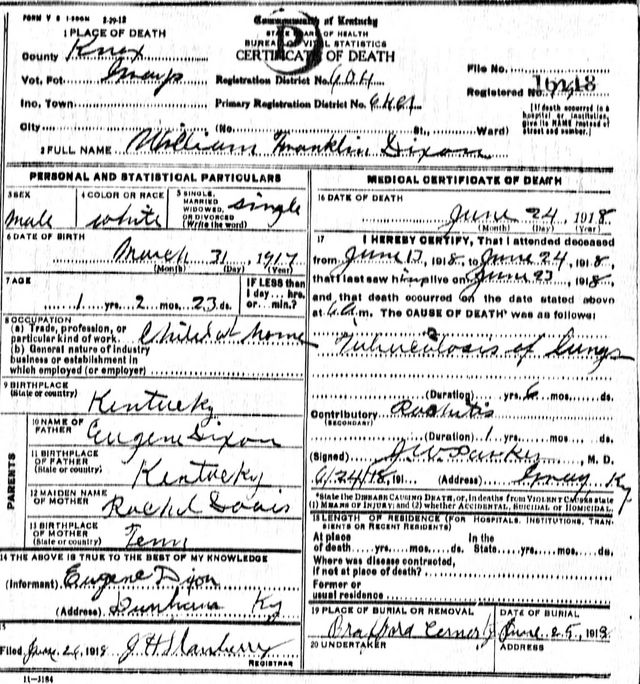 FORM V S 1-500M 3-29-18
Commonwealth of Kentucky
STATE BOARD OF HEALTH
BUREAU OF VITAL STATISTICS
CERTIFICATE OF DEATH
1 PLACE OF DEATH
County Knox
Vot. Pct. Grays
Registration District No.
File No.
Registered No.
Inc. Town
Primary Registration District No.
[If death occurred in a hospital or institution, give its NAME instead of street and number.]
City (No. St., Ward)
2 FULL NAME William Franklin Dixon
PERSONAL AND STATISTICAL PARTICULARS
3 SEX
male
4 COLOR OR RACE
white
5 SINGLE, MARRIED WIDOWED, OR DIVORCED (Write the word)
single
6 DATE OF BIRTH
March 31, 1917
(Month) (Day) (Year)
7 AGE
1 yrs. 2 mos. 23 ds.
IF LESS than 1 day... hrs. or... min.?
8 OCCUPATION
(a) Trade, profession, or particular kind of work. Child at home
(b) General nature of industry
business or establishment in
which employed (or employer)
9 BIRTHPLACE
(State or country)
Kentucky
PARENTS
10 NAME OF FATHER
Eugene Dixon
11 BIRTHPLACE OF FATHER
(State or country)
Kentucky
12 MAIDEN NAME OF MOTHER
Rachel Davis
13 BIRTHPLACE OF MOTHER
(State or country)
Tenn
14 THE ABOVE IS TRUE TO THE BEST OF MY KNOWLEDGE
(Informant) Eugene Dixon
(Address) Ky
15
Filed June 26, 1918 J H Stanberry
REGISTRAR
11-3184
MEDICAL CERTIFICATE OF DEATH
16 DATE OF DEATH
June 24, 1918
(Month) (Day) (Year)
17 I HEREBY CERTIFY, That I attended deceased
from June 17, 1918, to June 24, 1918
that I last saw him alive on June 23, 1918
and that death occurred on the date stated above
at 6 a.m. The CAUSE OF DEATH* was as follows:
Tuberculosis of lungs
(Duration) yrs. 6 mos. ds.
Contributory Rachitis
(SECONDARY)
(Duration) 1 yrs. mos. ds.
(Signed) J W Parker, M. D.
6/24/18, 191 (Address) Gray Ky
*State the DISEASE CAUSING DEATH, or, in deaths from VIOLENT CAUSES state
(1) MEANS OF INJURY; and (2) whether ACCIDENTAL, SUICIDAL or HOMICIDAL.
18 LENGTH OF RESIDENCE (FOR HOSPITALS, INSTITUTIONS, TRANSIENTS OR RECENT RESIDENTS)
At place of death yrs. mos. ds. In the State yrs. mos. ds.
Where was disease contracted,
if not at place of death?
Former or
usual residence
19 PLACE OF BURIAL OR REMOVAL
DATE OF BURIAL
June 25, 1918
20 UNDERTAKER
ADDRESS